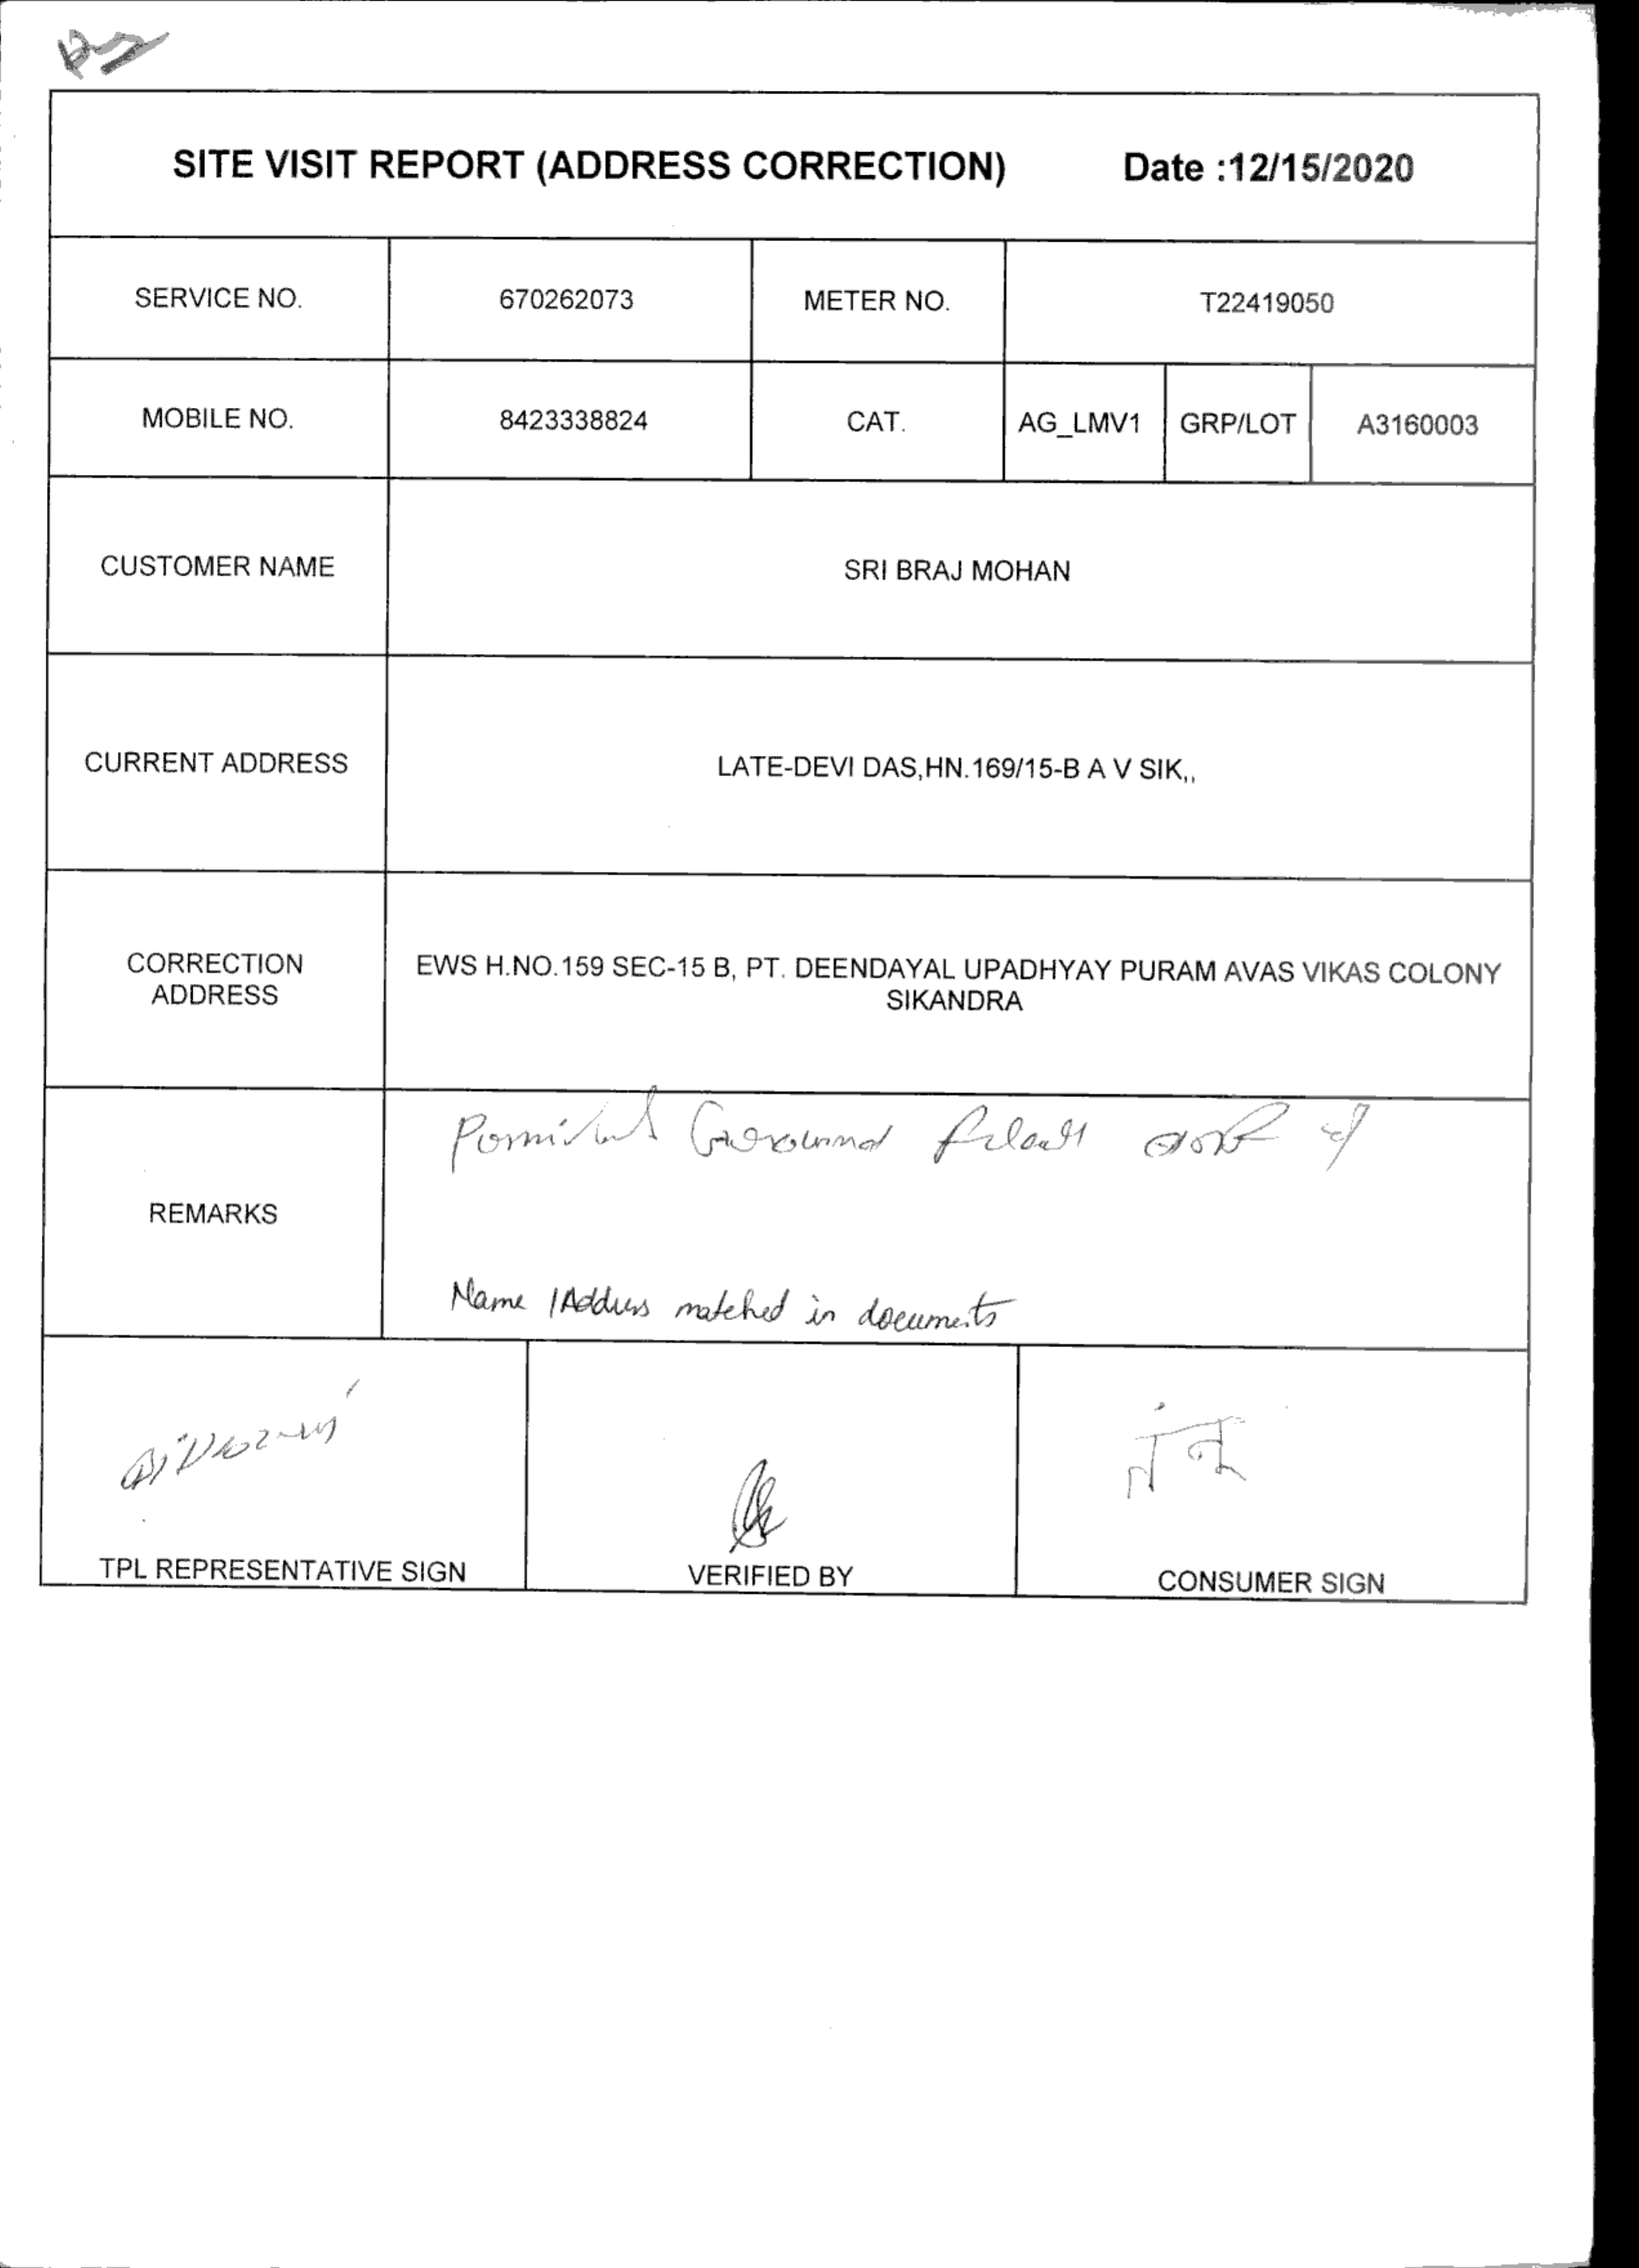 SITE VISIT REPORT (ADDRESS CORRECTION) Date :12/15/2020
SERVICE NO. 670262073 METER NO. T22419050
MOBILE NO. 8423338824 CAT. AG_LMV1 GRP/LOT A3160003
CUSTOMER NAME SRI BRAJ MOHAN
CURRENT ADDRESS LATE-DEVI DAS,HN.169/15-B A V SIK,,
CORRECTION
ADDRESS
EWS H.NO.159 SEC-15 B, PT. DEENDAYAL UPADHYAY PURAM AVAS VIKAS COLONY
SIKANDRA
REMARKS
Name / Address matched in documents
TPL REPRESENTATIVE SIGN VERIFIED BY CONSUMER SIGN